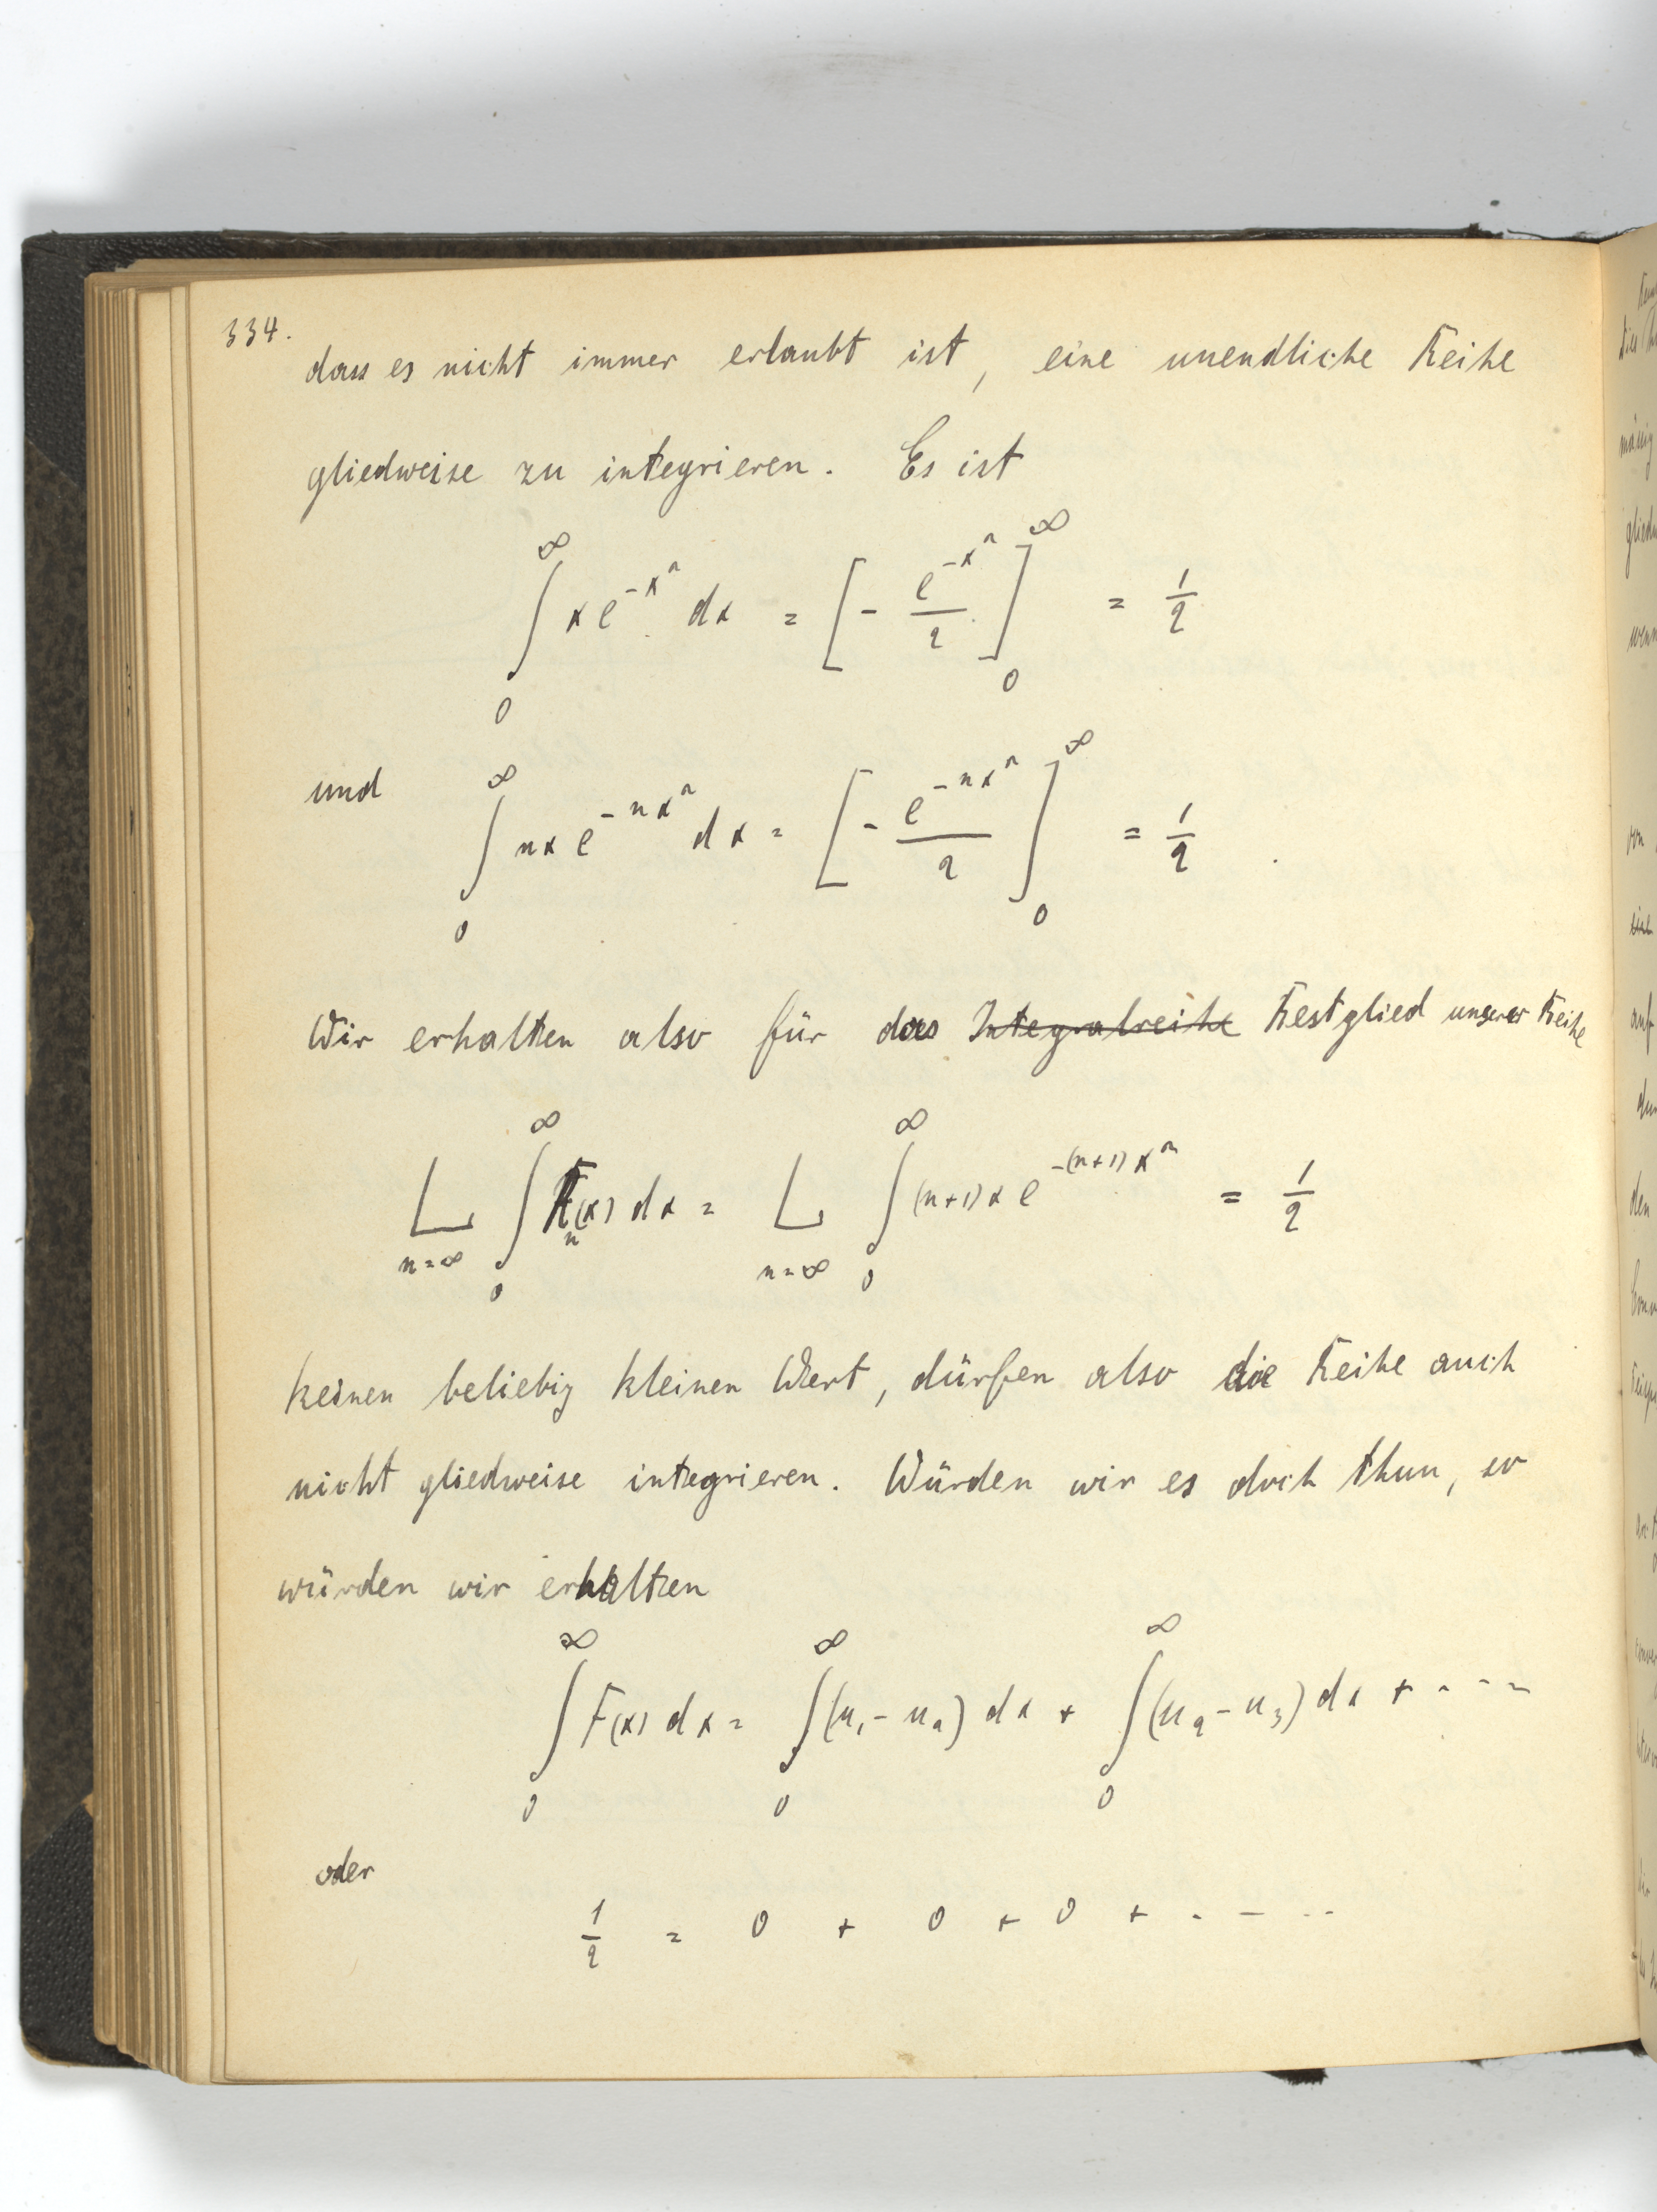 334.
dass es nicht immer erlaubt ist, eine unendliche Reihe
gliedweise zu integrieren. Es ist
∫₀^∞ x e^{-x²} dx = [- e^{-x²}/2]₀^∞ = 1/2
und ∫₀^∞ nx e^{-nx²} dx = [- e^{-nx²}/2]₀^∞ = 1/2.
Wir erhalten also für das Integralreihe Restglied unserer Reihe
L_{n=∞} ∫₀^∞ R_n(x) dx = L_{n=∞} ∫₀^∞ (n+1) x e^{-(n+1)x²} = 1/2
keinen beliebig kleinen Wert, dürfen also die Reihe auch
nicht gliedweise integrieren. Würden wir es doch thun, so
würden wir erhalten
∫₀^∞ F(x) dx = ∫₀^∞ (u₁ - u₂) dx + ∫₀^∞ (u₂ - u₃) dx + ....
oder
1/2 = 0 + 0 + 0 + ....